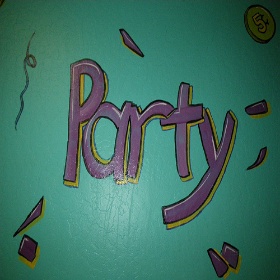 Party
5